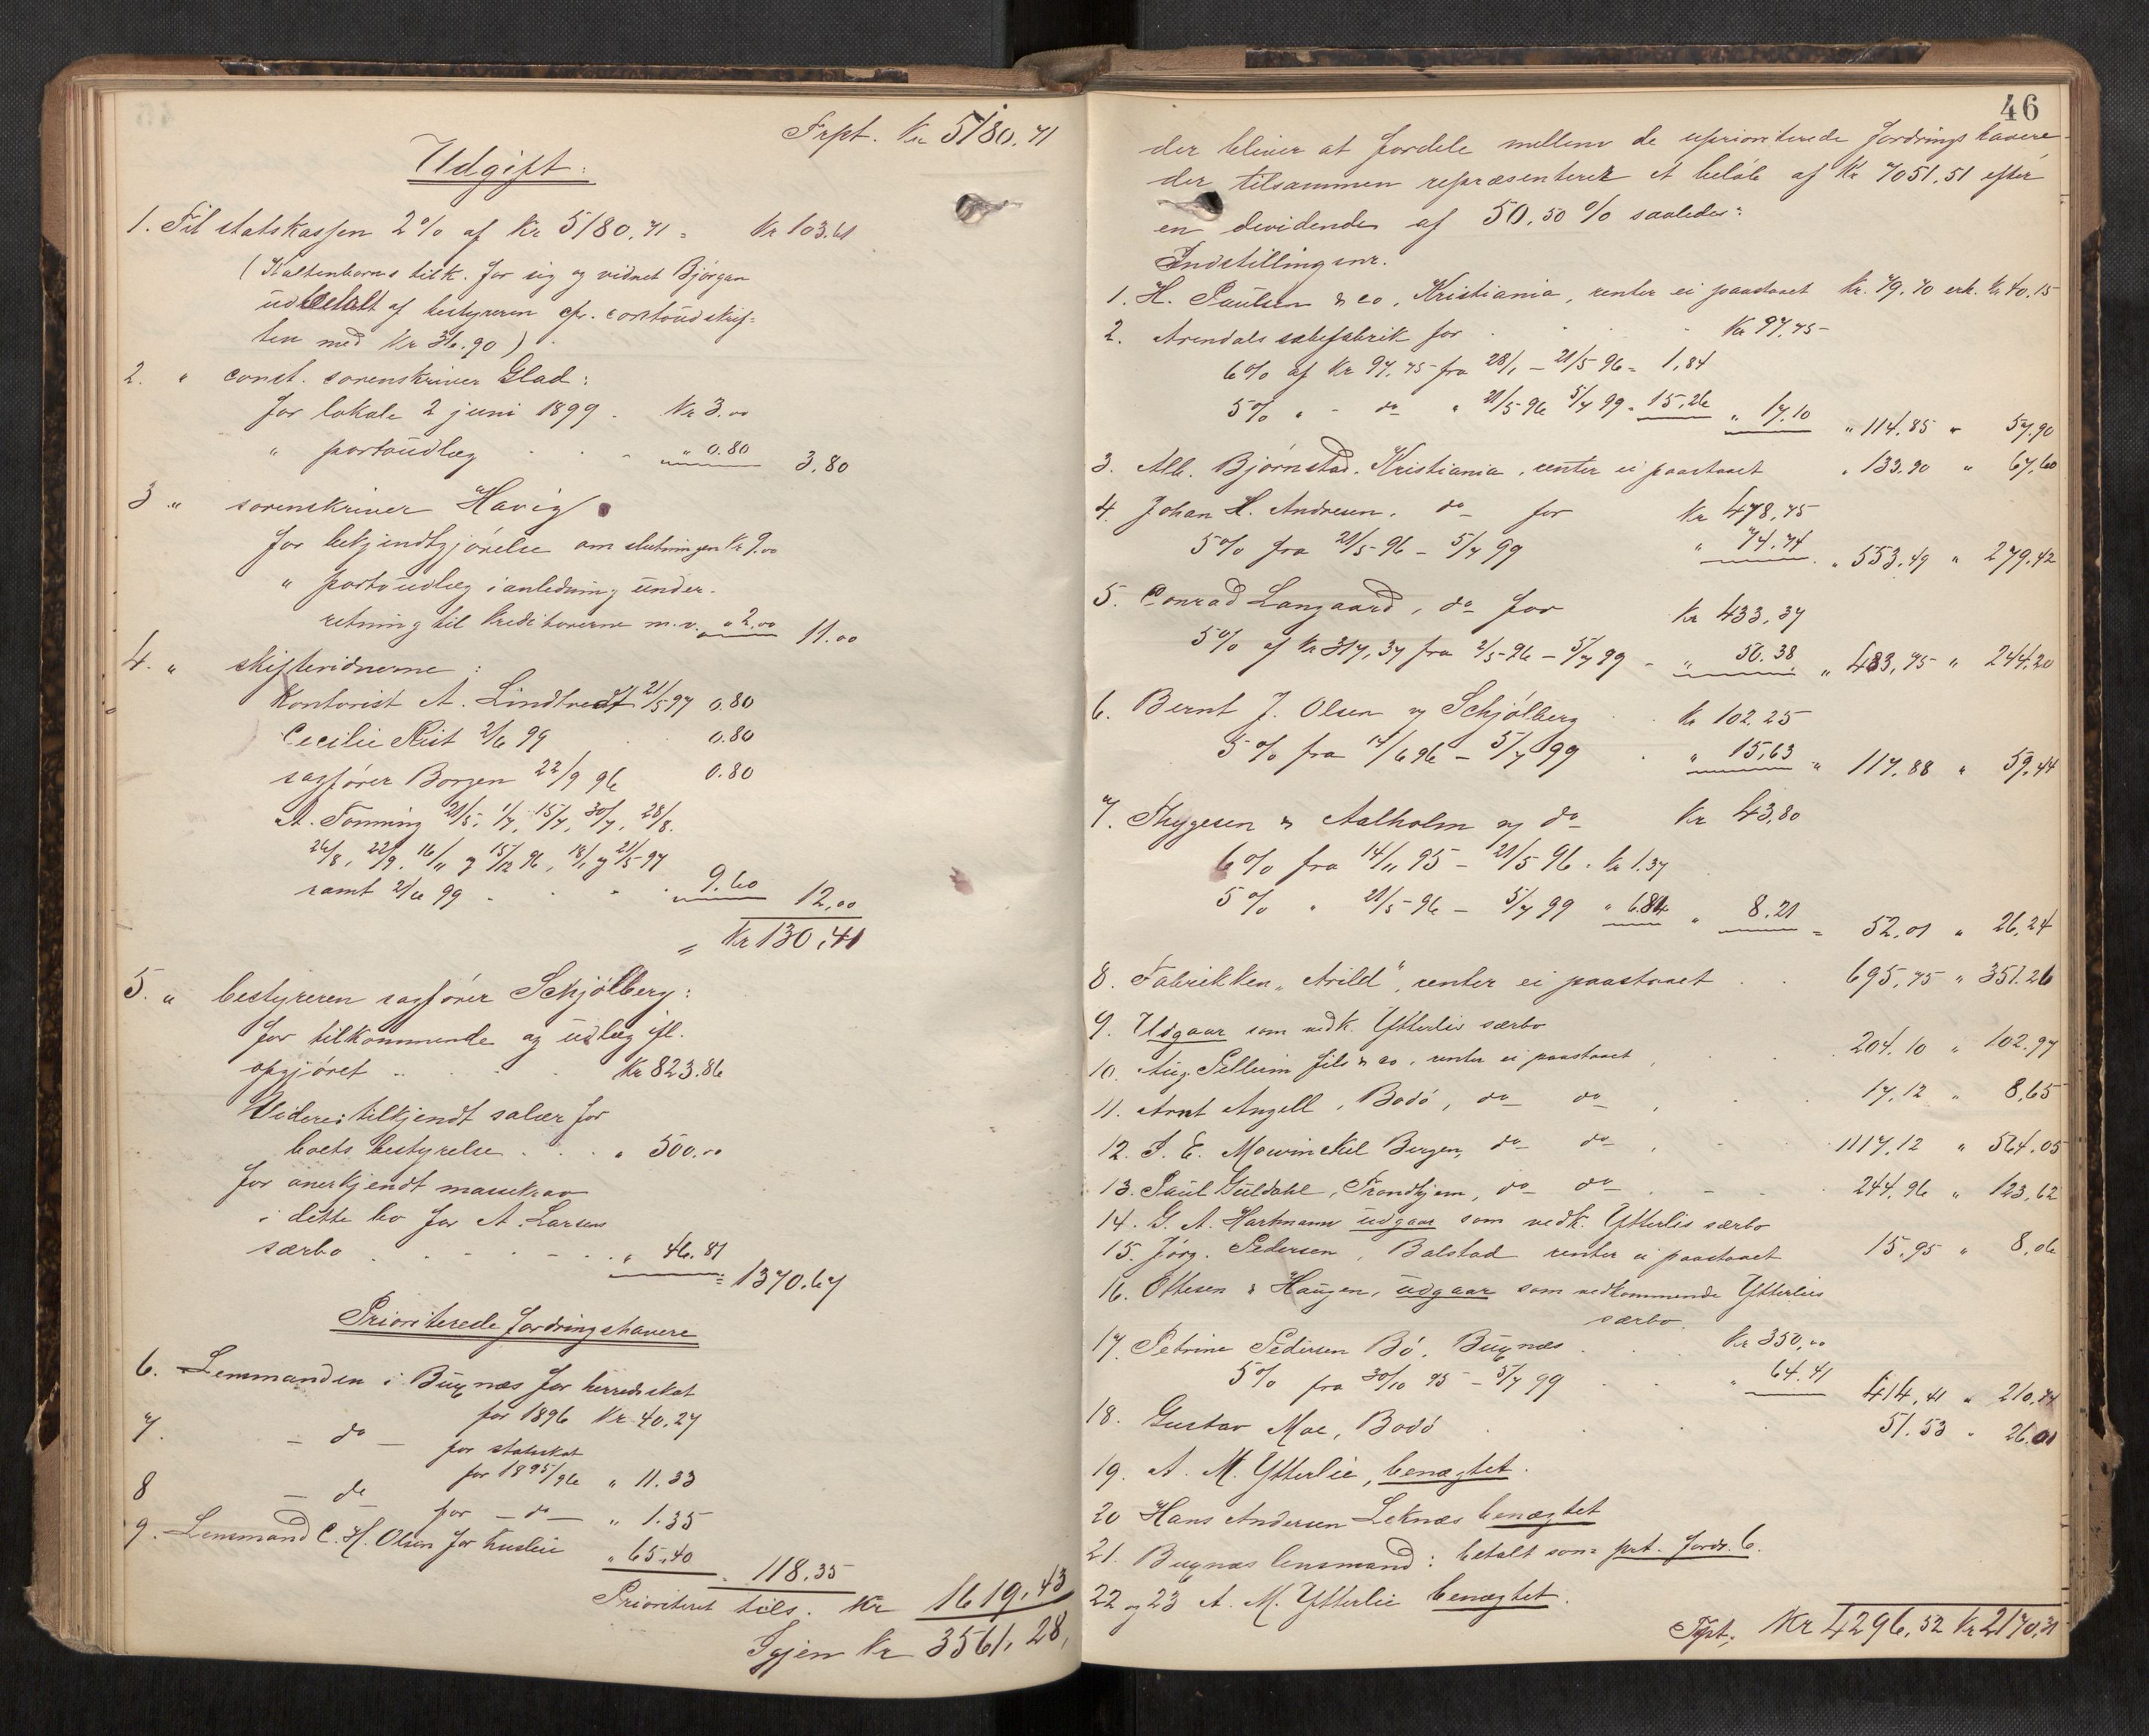 Frpt. Kr 5180.71
Udgift:
1. Til statskassen 2% af Kr 5180,71 = Kr 103.61
(Kaltenborns tilk. for sig og vidnet Bjørgan
udbetalt af bestyreren cfr. contoudskrif-
ten med Kr 36.90).
2. " const. sorenskriver Glad:
for lokale 2 juni 1899 . Kr 3.00
" portoudlæg . . - " 0.80 3,80
3 " sorenskriver Havig
for bekjendtgjørelse om slutningen Kr 9.00
" portoudlæg i anledning under-
retning til kreditorerne m.v. " 2.00 11.00
4. " skiftevidnerne:
Kontorist A. Lindtvedt 21/5 97 0.80
Cecilie Rist 2/6 99 . . 0.80
sagfører Borgen 22/9 96 0.80
A. Tønning 21/5, 1/7, 15/7, 30/7, 28/8.
26/8, 22/9, 16/11 og 15/12 96, 18/1 og 21/5 97
samt 2/6 99 - . . . 9.60 12,00
= Kr 130,41
5. " bestyreren sagfører Schjølberg:
for tilkommende og udlæg ifl.
opgjøret .. . . . Kr 823.86
Videre: tilkjendt salær for
boets bestyrelse . . . " 500.00
for anerkjendt massekrav
i dette bo for A. Larsens
særbo . . - . - . . " 46.81 = 1370.67
Prioriterede fordringshavere
6. Lensmanden i Buxnæs for herredsskat
for 1896 Kr 40.27
7. - do - for statsskat
for 1895/96 " 11.33
8 - do - for - do - " 1.35
9. Lensmand C. H. Olsen for husleie " 65.40 . 118.35
Prioriteret tils. Kr 1619,43
Igjen Kr 3561,28,
46
der bliver at fordele mellem de uprioriterede fordringshavere,
der tilsammen repræsenterer et beløb af Kr 7051.51 efter
en devidende af 50,50% saaledes:
Indstillingsnr.
1. H. Paulsen & co, Kristiania, renter ei paastaaet Kr. 79.70 erh. Kr 40.15
2. Arendals sæbefabrik for . . . Kr 97,75
6% af Kr 97.75 fra 28/1 - 21/5 96 = 1,84
5% " - do " 21/5 96 5/7 99 " 15,26 " 17.10 " 114.85 " 57.90
3. Alb. Bjørnstad. Kristiania, renter ei paastaaet " 133.90 " 67,60
4. Johan H. Andresen, do for Kr 478,75
5% fra 21/5 96 - 5/7 99 " 74.74 . " 553,49 " 279.42
5. Conrad Langaard, do for Kr 433,37
5% af Kr 317,37 fra 2/5 96 - 5/7 99 - " 50.38 " 483,75 " 244,20
6. Bernt J. Olsen og Schjølberg . . Kr 102.25
5% fra 14/6 96 - 5/7 99 . " 15,63 " 117.88 " 59,44
7. Thygesen & Aalholm og do Kr 43,80
6% fra 14/11 95 - 21/5 96 . Kr 1.37
5% " 21/5 96 - 5/7 99 " 6.84 " 8.21 = 52,01 " 26,24
8. Fabrikken "Arild", renter ei paastaaet . . 695,75 " 351.26
9. Udgaar som vedk. Ytterlies særbo
10. Aug. Pellerin fils & co, renter ei paastaaet , . . 204.10 " 102.97
11. Arnt Angell, Bodø, do do , . . 17,12 " 8,65
12. J. E. Mowinckel Bergen, do do , - . 1117,12 " 564.05
13. Paul Guldahl, Trondhjem, do do . - . 244,96 " 123,62
14. G. A. Hartmann udgaar som vedk. Ytterlies særbo
15. Jørg. Pedersen, Balstad renter ei paastaaet 15,95 " 8,06
16. Ottesen & Haugen, udgaar som vedkommende Ytterlies
særbo.
17. Petrine Pedersen Bø, Buxnæs . . . Kr 350,00
5% fra 30/10 95 - 5/7 99 . . " 64.41 414,41 " 210,74
18. Gustav Moe, Bodø . . . . 51.53 " 26.01
19. A. M. Ytterlie, benægtet.
20 Hans Andersen Leknæs benægtet
21. Buxnæs lensmand: betalt som prt. fordr. 6.
22 og 23 A. M. Ytterlie benægtet.
Trpt. Kr 4296,52 Kr 2170,31